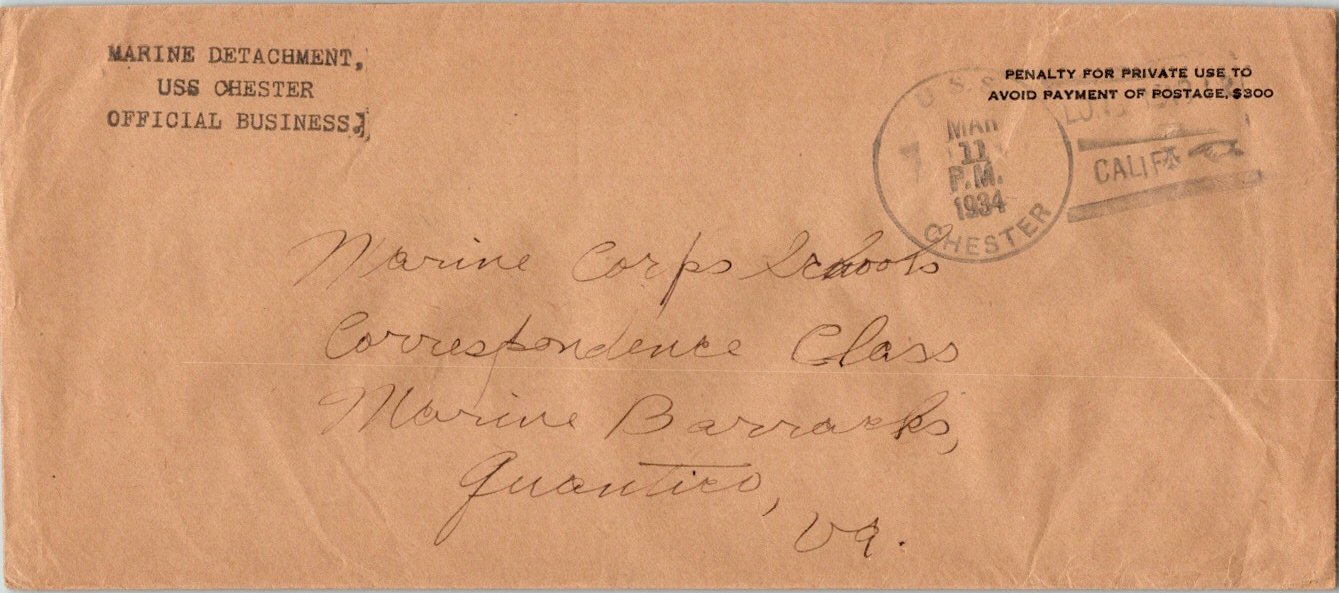 MARINE DETACHMENT,
USS CHESTER
OFFICIAL BUSINESS.
PENALTY FOR PRIVATE USE TO
AVOID PAYMENT OF POSTAGE, $300
U.S.S.
MAR
11
P.M.
1934
CHESTER
CALIF
Marine Corps Schools
Correspondence Class
Marine Barracks,
Quantico,
Va.